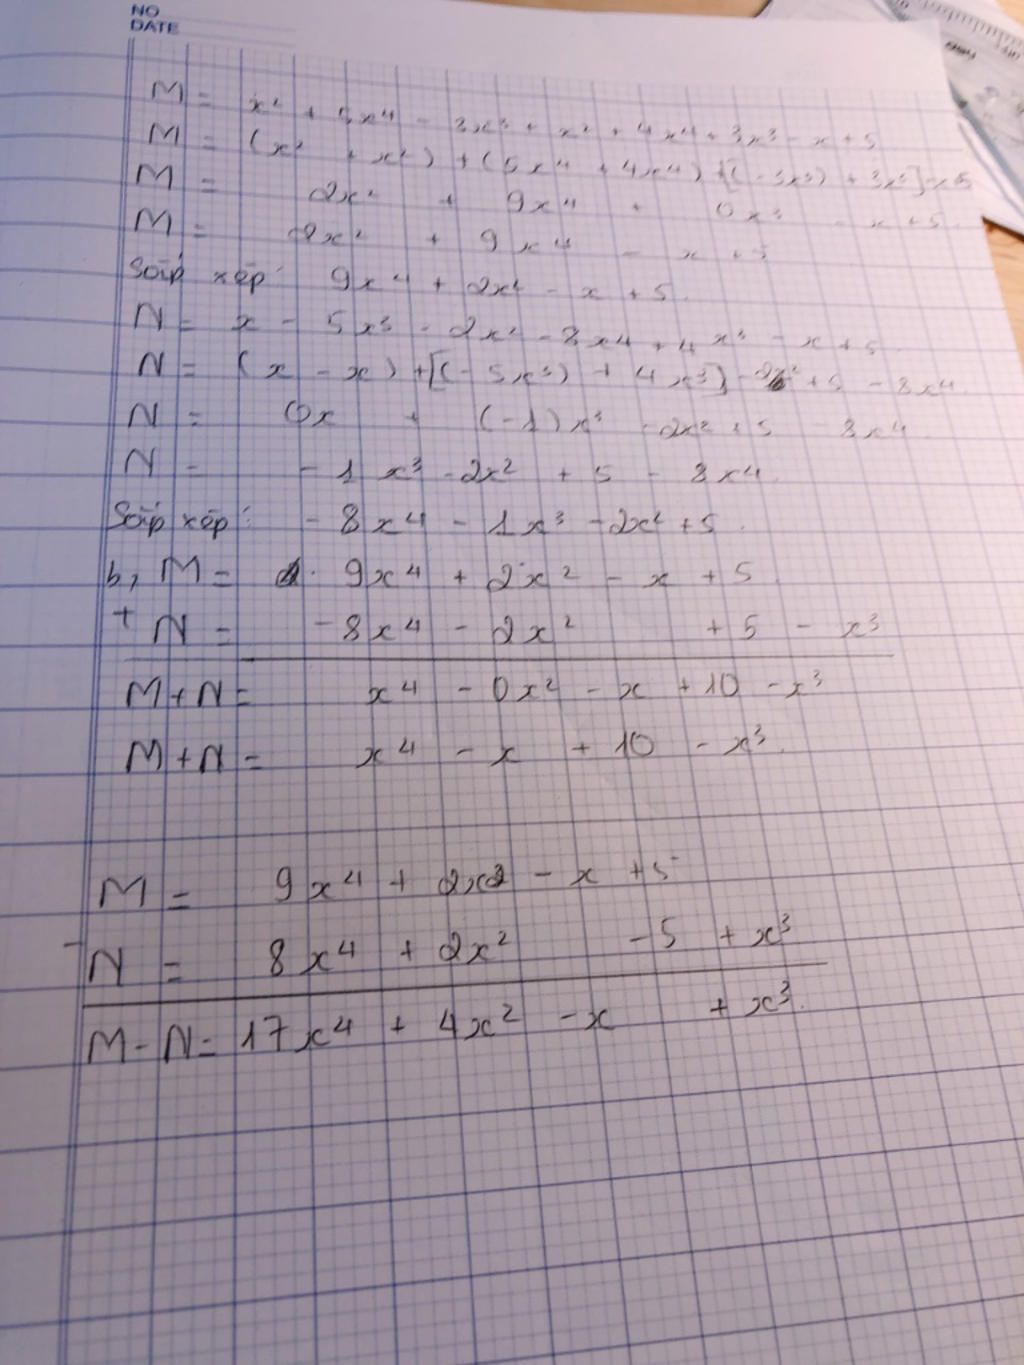 NO
DATE
M = x² + 5x⁴ - 3x³ + x² + 4x⁴ + 3x³ - x + 5
M = (x² + x²) + (5x⁴ + 4x⁴) + [(-3x³) + 3x³] - x + 5
M = 2x² + 9x⁴ + 0x³ - x + 5.
M = 2x² + 9x⁴ - x + 5
Sắp xếp: 9x⁴ + 2x² - x + 5.
N = x - 5x³ - 2x² - 8x⁴ + 4x³ - x + 5
N = (x - x) + [(-5x³) + 4x³] - 2x² + 5 - 8x⁴.
N = 0x + (-1)x³ - 2x² + 5 - 8x⁴.
N = -1x³ - 2x² + 5 - 8x⁴.
Sắp xếp: -8x⁴ - 1x³ - 2x² + 5.
b, M = 9x⁴ + 2x² - x + 5
+ N = -8x⁴ - 2x² + 5 - x³
M+N = x⁴ - 0x² - x + 10 - x³
M+N = x⁴ - x + 10 - x³.
M = 9x⁴ + 2x2 - x + 5
- N = 8x⁴ + 2x² - 5 + x³
M-N = 17x⁴ + 4x² - x + x³.